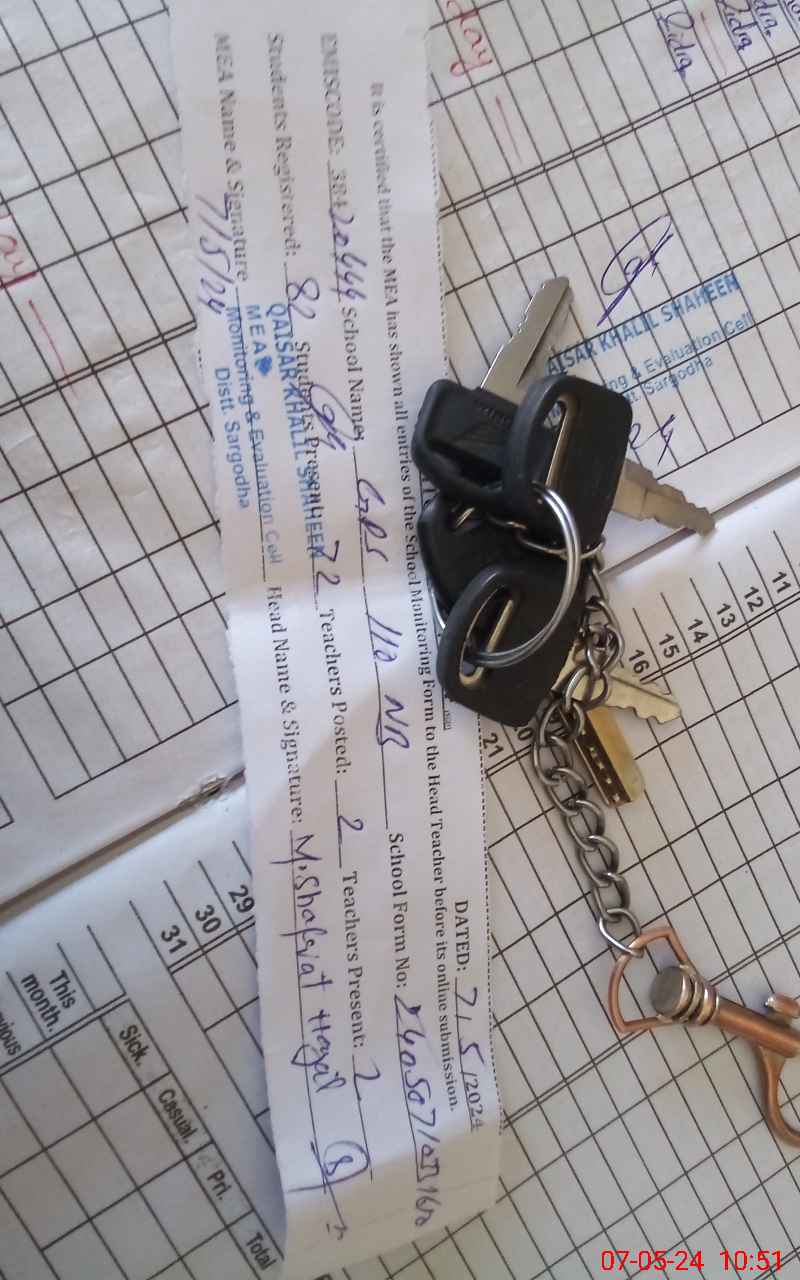 DATED: 7/5/2024
It is certified that the MEA has shown all entries of the School Monitoring Form to the Head Teacher before its online submission.
EMISCODE: 38420444 School Name: GPS 110 NB School Form No:
Students Registered: 82 Students Present: 72 Teachers Posted: 2 Teachers Present: 2
MEA Name & Signature Head Name & Signature: M. Shafqat Hayat
7/5/24
QAISAR KHALIL SHAHEEN
MEA
Monitoring & Evaluation Cell
Distt. Sargodha
day
AISAR KHALIL SHAHEEN
ng & Evaluation Cell
tt. Sargodha
11
12
13
14
15
16
21
29
30
31
This
month.
Sick.
Casual.
Pri.
Total
07-05-24 10:51